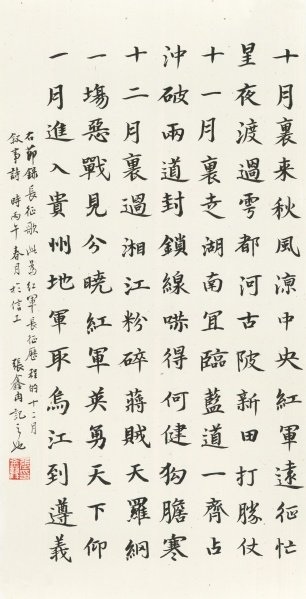 十月裏来秋風涼中央紅軍遠征忙
星夜渡過雩都河古陂新田打勝仗
十一月裏走湖南宜臨藍道一齊占
沖破兩道封鎖線嚇得何健狗膽寒
十二月裏過湘江粉碎蔣賊天羅網
一塲惡戰見分曉紅軍英勇天下仰
一月進入貴州地軍取烏江到遵義
右節錄長征歌此爲紅軍長征歷程的十二月
叙事詩 時丙午春月於信工 張鑫冉記之也